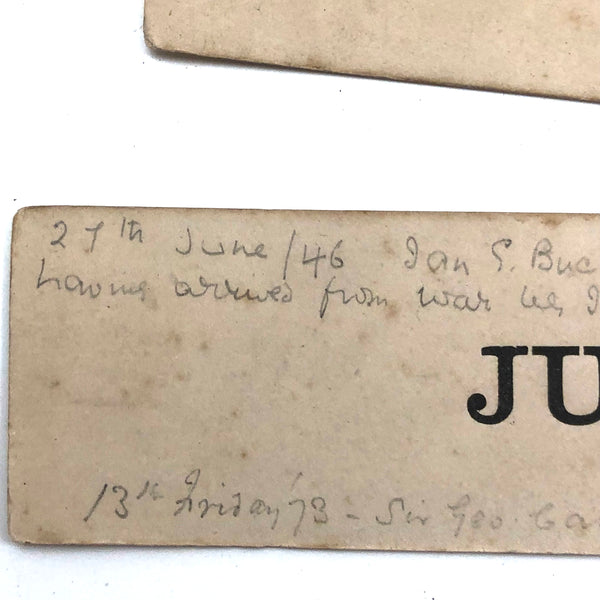 27th June/46 Ian G. Buc
having arrived from war
JU
13th Friday '73 - Sir Geo. Ca